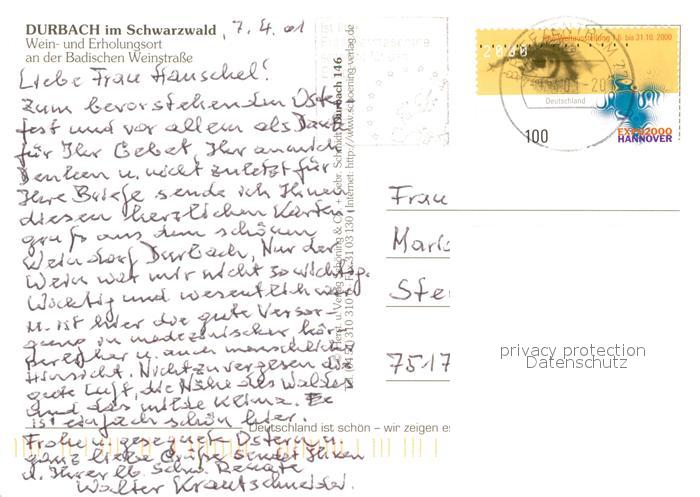 DURBACH im Schwarzwald
Wein- und Erholungsort
an der Badischen Weinstraße
7.4.01
Liebe Frau Hauschel!
Zum bevorstehenden Oster
fest und vor allem als Dank
für Ihr Gebet, Ihr an mich
Denken u. nicht zuletzt für
Ihre Briefe sende ich Ihnen
diesen herzlichen Karten
gruß aus dem schönen
Weindorf Durbach, Nur der
Wein war mir nicht so wichtig.
Wichtig und wesentlich war
u. ist hier die gute Versor-
gung in medizinischer kör-
perlicher u. auch menschlicher
Hinsicht. Nicht zu vergessen die
gute Luft, die Nähe des Waldes
und das milde Klima. Es
ist einfach schön hier.
Frohe u. gesegnete Ostern u.
ganz liebe Grüße sendet Ihnen
u. Ihrer lb. Schw. Renate
Walter Krautschneider.
Durbach 146
Internet: http://www.schoening-verlag.de
Deutschland ist schön – wir zeigen es
Weltausstellung 1.6. bis 31.10. 2000
2000
Deutschland
100
EXPO2000
HANNOVER
Frau
Mari
Ste
7517
privacy protection
Datenschutz